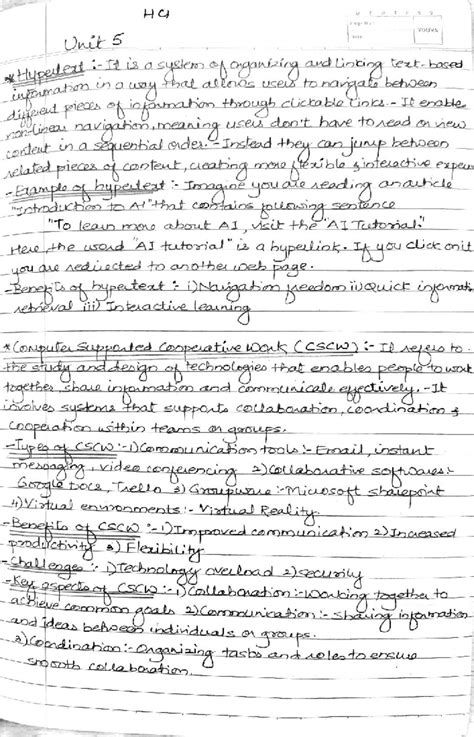 HCI
Unit 5
* Hypertext :- It is a system of organizing and linking text-based
information in a way that allows users to navigate between
different pieces of information through clickable links. - It enable
non-linear navigation, meaning users don't have to read or view
content in a sequential order. - Instead they can jump between
related pieces of content, creating more flexible & interactive
- Example of hypertext :- Imagine you are reading an article
"Introduction to AI" that contains following sentence
"To learn more about AI, visit the "AI Tutorial."
Here the word "AI tutorial" is a hyperlink. If you click on it
you are redirected to another web page.
- Benefits of hypertext :- i) Navigation freedom ii) Quick
retrieval iii) Interactive learning
* Computer Supported Cooperative Work (CSCW) :- It refers to
the study and design of technologies that enables people to work
together, share information and communicate effectively. - It
involves systems that supports collaboration, coordination &
cooperation within teams or groups.
- Types of CSCW :- 1) Communication tools :- Email, instant
messaging, video conferencing 2) Collaborative softwares :-
Google Docs, Trello 3) Groupware :- Microsoft sharepoint
4) Virtual environments :- Virtual Reality.
- Benefits of CSCW :- 1) Improved communication 2) Increased
productivity 3) Flexibility
- Challenges :- 1) Technology overload 2) security
- Key aspects of CSCW :- 1) Collaboration :- Working together to
achieve common goals 2) Communication :- sharing information
and ideas between individuals or groups.
3) Coordination :- Organizing tasks and roles to ensure
smooth collaboration.